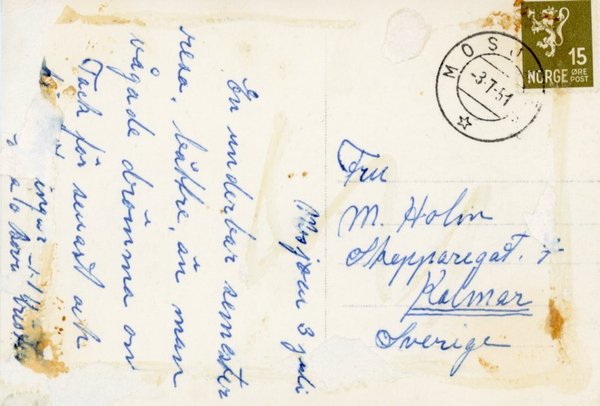 Mosjøen 3 juli
En underbar semester
resa, bättre, än man
vågade drömma om
Tack för senast och
MOSJ
-3.7-51
15
NORGE ØRE
POST
Fru
M. Holm
Skepparegat.
Kalmar
Sverige